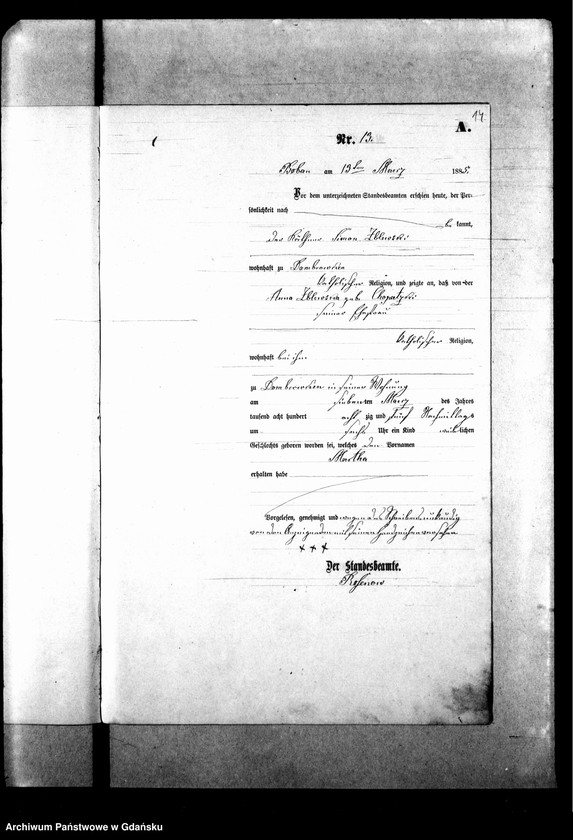 14.
A.
Nr. 13.
am 13ten März 1885.
Vor dem unterzeichneten Standesbeamten erschien heute, der Per-
sönlichkeit nach
be kannt,
der Käthner Simon
wohnhaft zu
katholischer Religion, und zeigte an, daß von der
Anna geb.
seiner Ehefrau
katholischer Religion,
wohnhaft bei ihm
zu in seiner Wohnung
am siebenten März des Jahres
tausend acht hundert acht zig und fünf Nachmittags
um sechs Uhr ein Kind weiblichen
Geschlechts geboren worden sei, welches den Vornamen
Martha
erhalten habe
Vorgelesen, genehmigt und wegen des Schreibens unkundig
von dem Anzeigenden mit seinem Handzeichen versehen
+ + +
Der Standesbeamte.
Archiwum Państwowe w Gdańsku